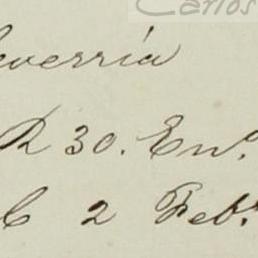 Carlos
everría
R 30. En.º
C 2 Feb.º